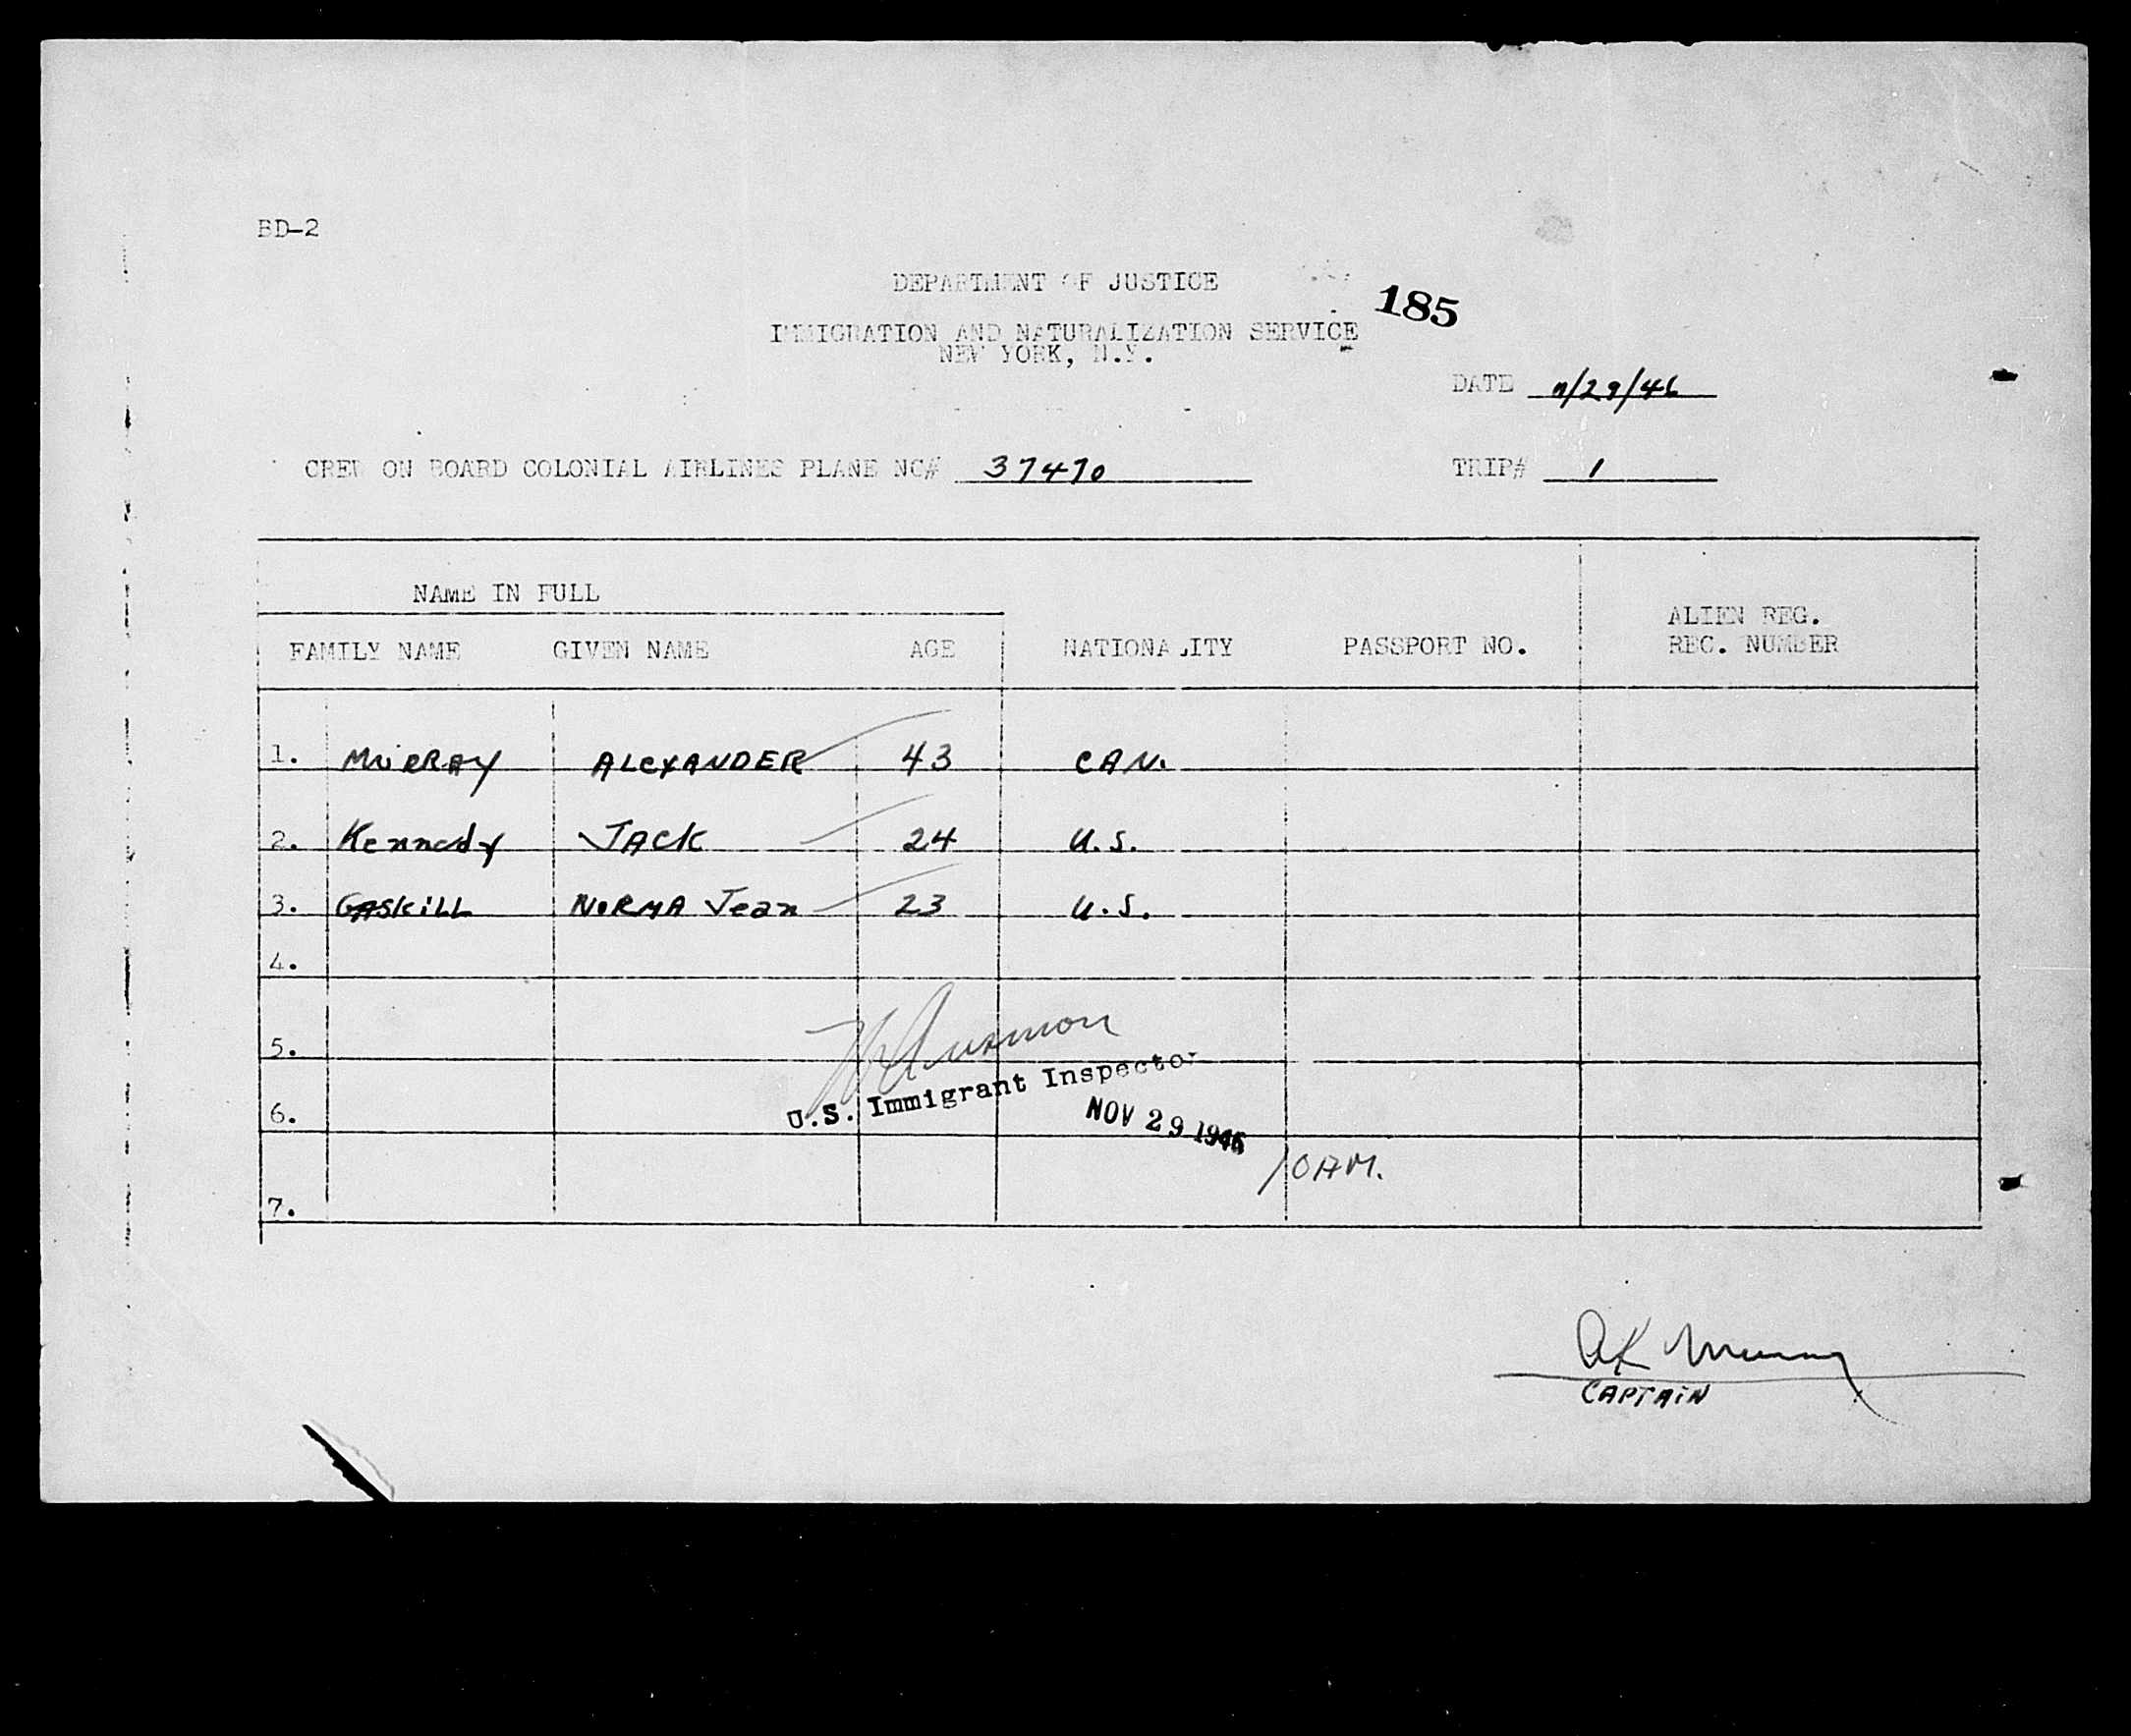 BD-2
DEPARTMENT OF JUSTICE
185
IMMIGRATION AND NATURALIZATION SERVICE
NEW YORK, N.Y.
DATE 11/29/46
CREW ON BOARD COLONIAL AIRLINES PLANE NC# 37470 TRIP# 1
NAME IN FULL
ALIEN REG.
FAMILY NAME GIVEN NAME AGE NATIONALITY PASSPORT NO. REC. NUMBER
1. MURRAY ALEXANDER 43 CAN.
2. Kennedy JACK 24 U.S.
3. GASKILL NORMA Jean 23 U.S.
4.
5.
U.S. Immigrant Inspector
6.
NOV 29 1946
10 A.M.
7.
AK Murray
CAPTAIN